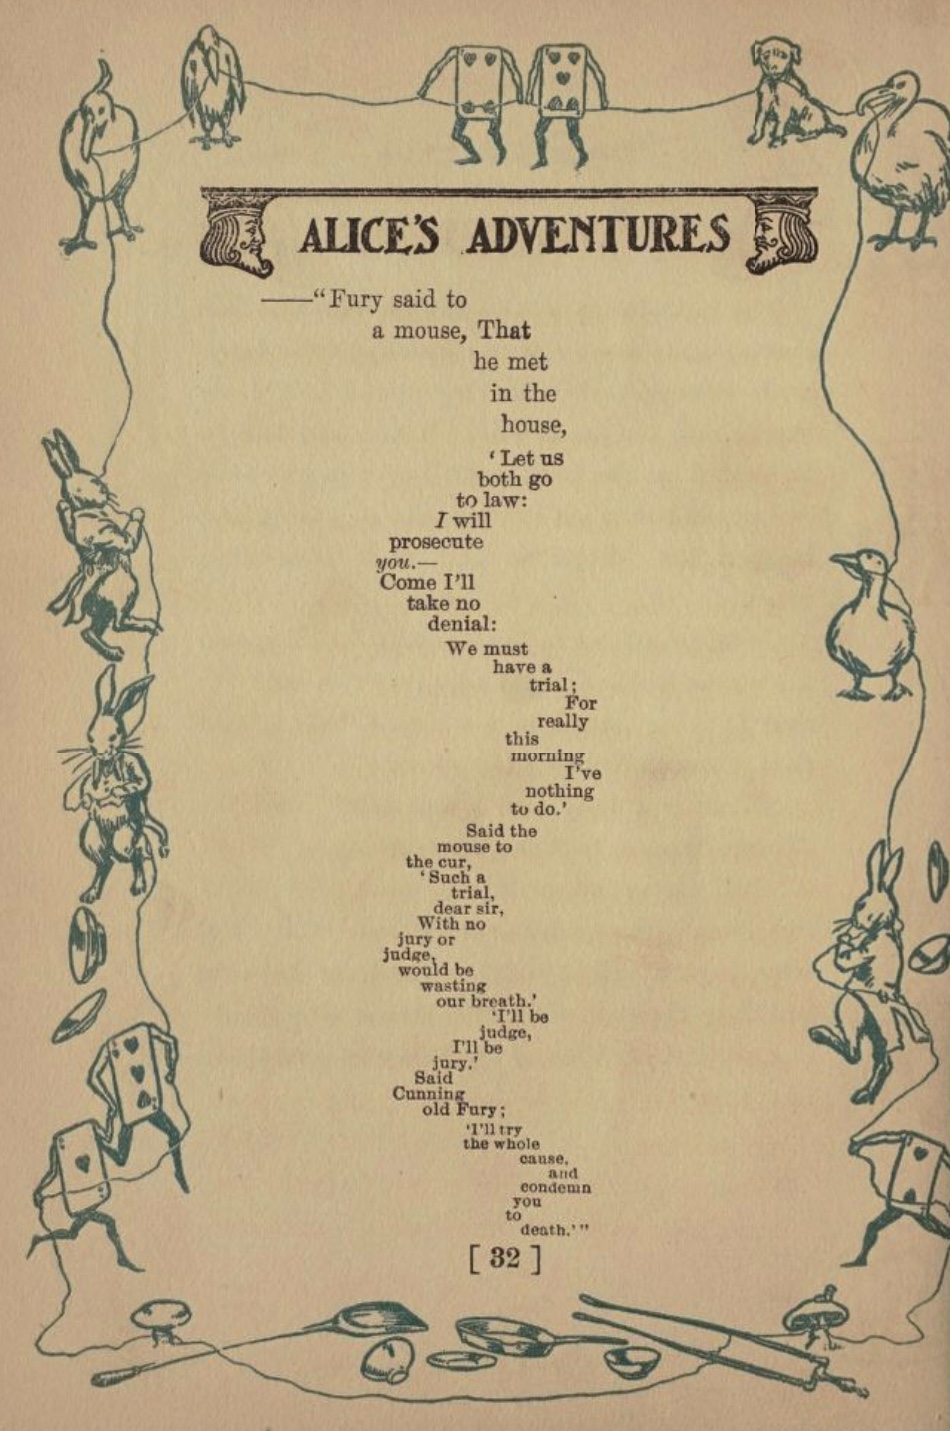 ALICE'S ADVENTURES
——“Fury said to
a mouse, That
he met
in the
house,
‘Let us
both go
to law:
I will
prosecute
you.—
Come I’ll
take no
denial:
We must
have a
trial;
For
really
this
morning
I’ve
nothing
to do.’
Said the
mouse to
the cur,
‘Such a
trial,
dear sir,
With no
jury or
judge,
would be
wasting
our breath.’
‘I’ll be
judge,
I’ll be
jury.’
Said
Cunning
old Fury;
‘I’ll try
the whole
cause,
and
condemn
you
to
death.’”
[ 32 ]